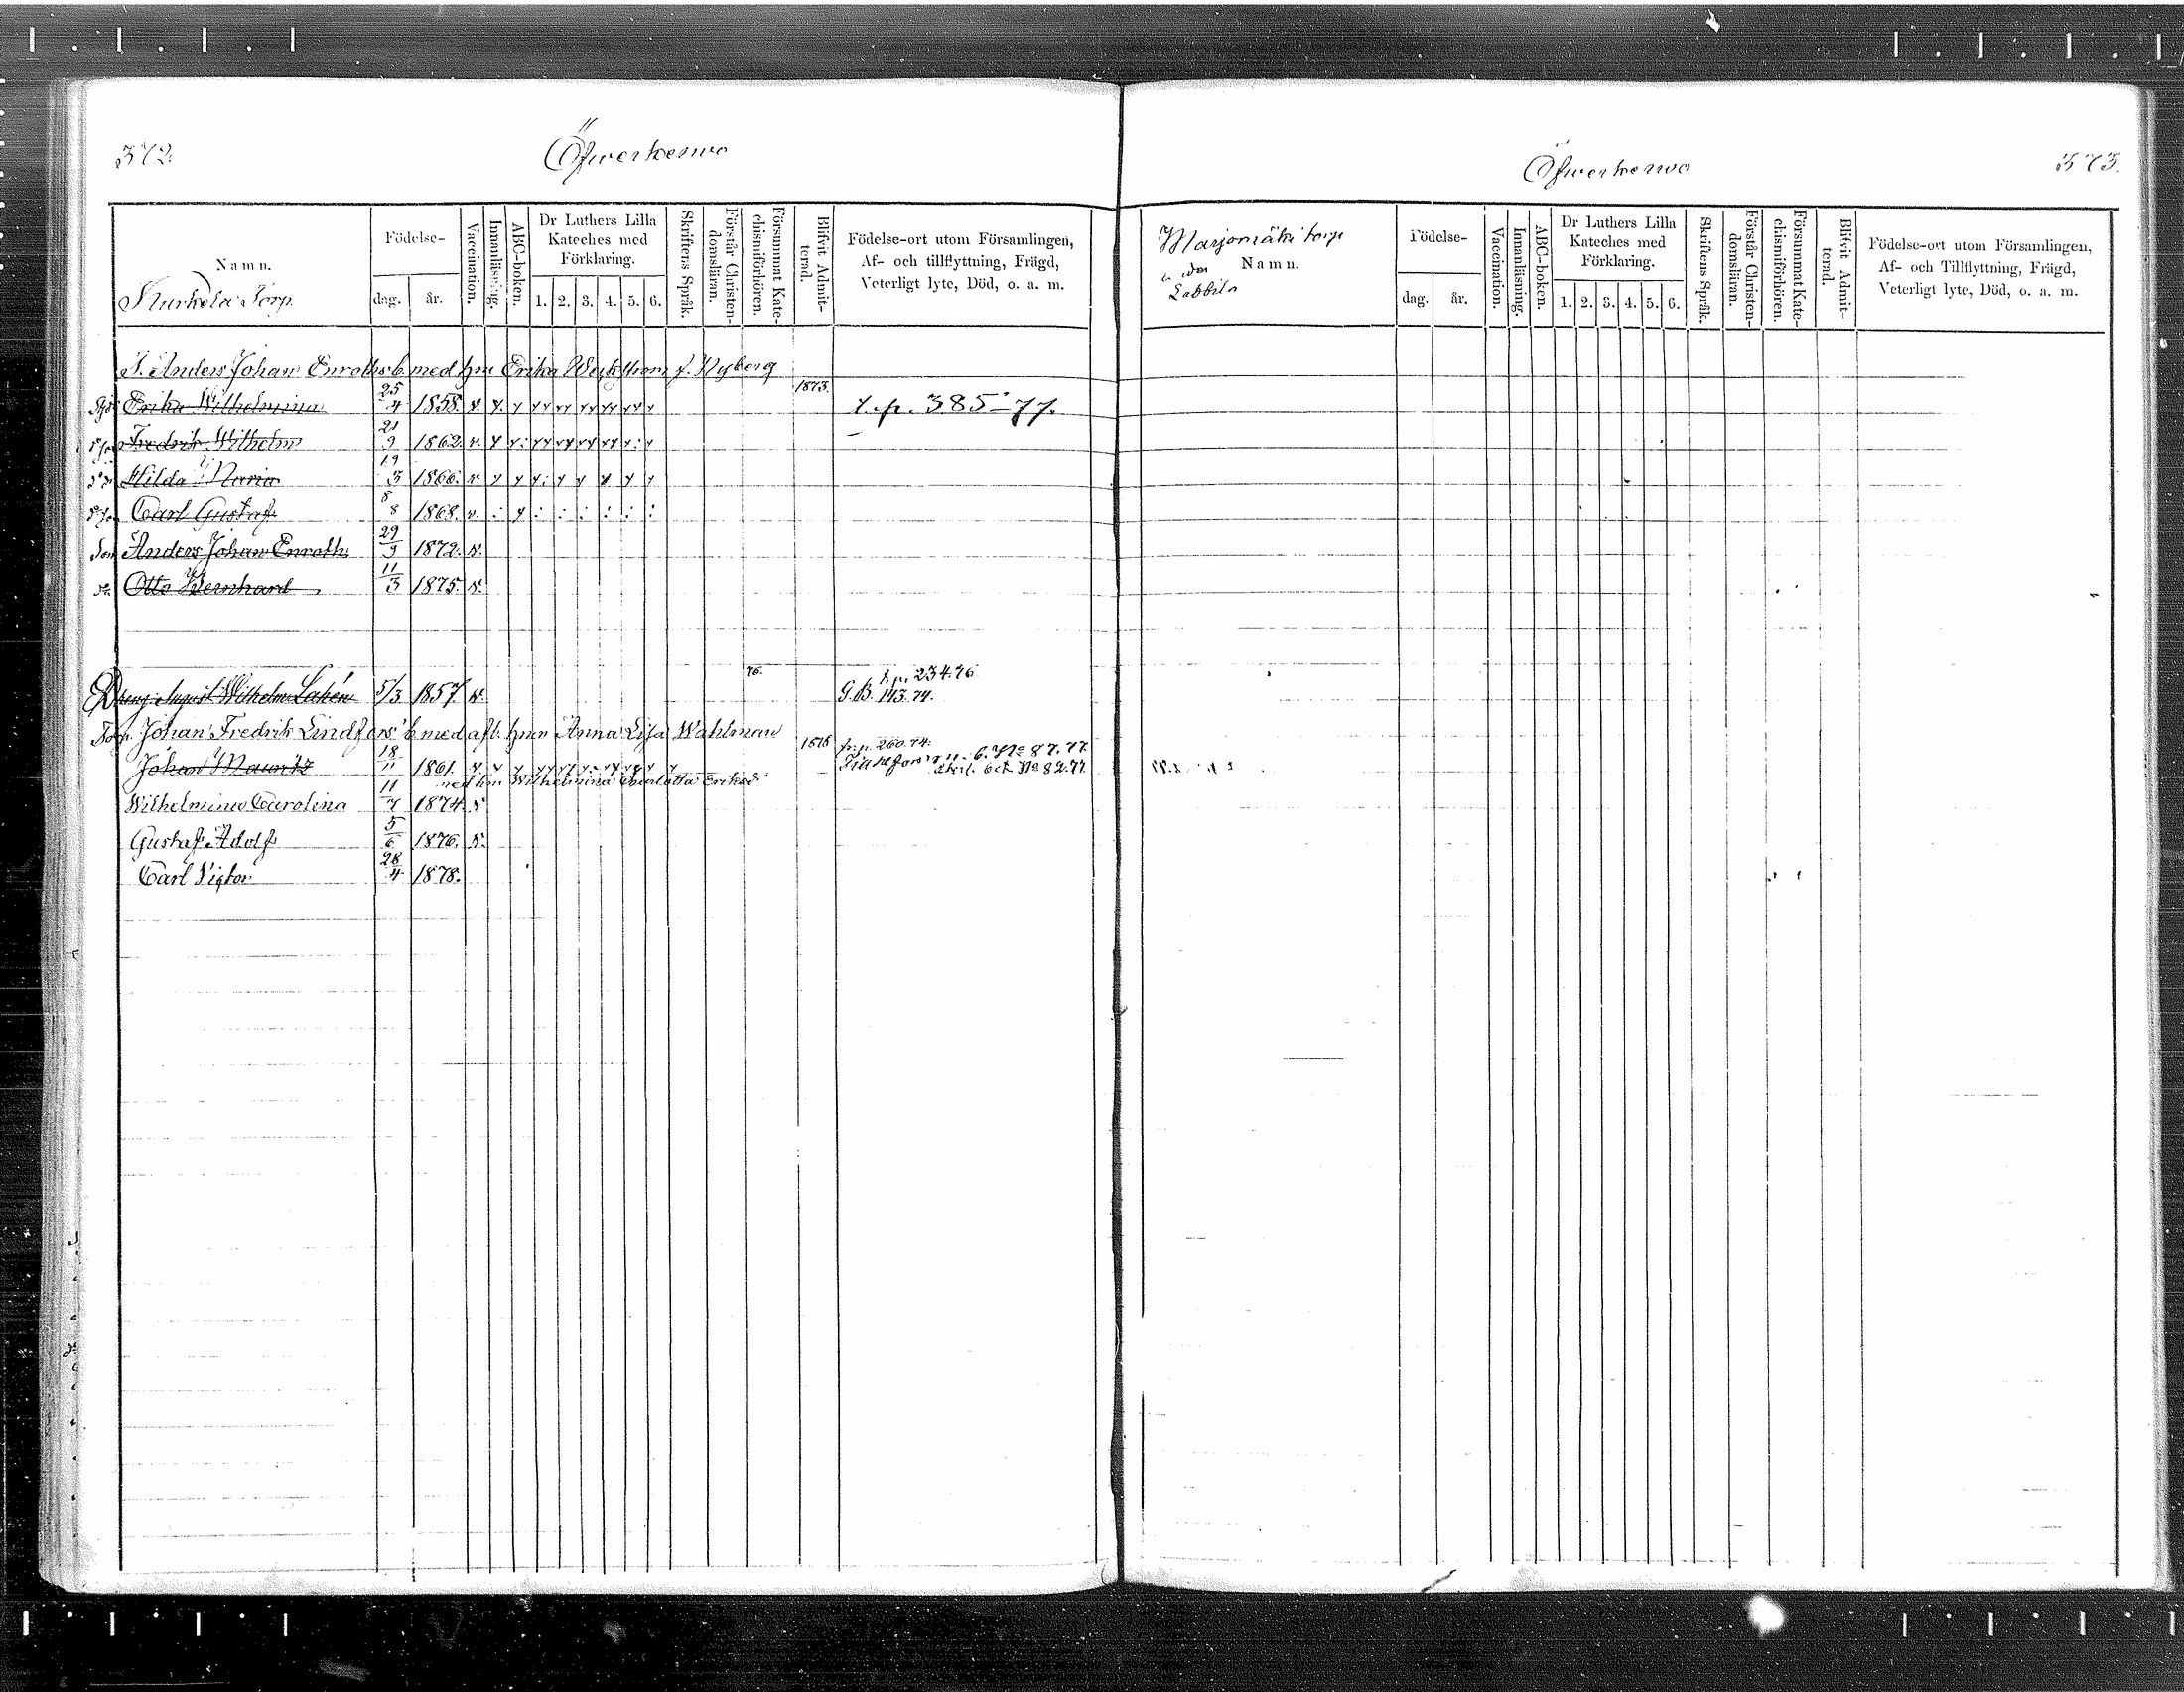 372.
Öfwerkerwo
Namn.
Kurkela Torp.
Födelse-
dag.
år.
Vaccination.
Innanläsning.
ABC-boken.
Dr Luthers Lilla
Kateches med
Förklaring.
1. 2. 3. 4. 5. 6.
Skriftens Språk.
Förstår Christen-
domsläran.
Försummat Kate-
chismiförhören.
Blifvit Admit-
terad.
Födelse-ort utom Församlingen,
Af- och tillflyttning, Frägd,
Veterligt lyte, Död, o. a. m.
T. Anders Johan Enroths b. med hu Erika f. Nyberg
Erika Wilhelmina 25/4 1858. v. 1873. t. p. 385-77.
Fredrik Wilhelm 21/9 1862. v.
Hilda Maria 19/3 1866. v.
Carl Gustaf 8/8 1868. v.
Son Anders Johan Enroth 29/9 1872. v.
Otto Bernhard 11/3 1875. v.
Dreng August Wilhelm Lahén 5/3 1857. v. 76. t. p. 234.76
G.B. 143.74.
Torp. Johan Fredrik Lindfors' b. med afl. hu Anna Lisa Wahlman
Johan Mauritz 18/11 1861. fr. p. 260.74.
No 87.77.
No 82.77.
med hu Wilhelmina Charlotta Eriksd
Wilhelmina Carolina 11/7 1874. v
Gustaf Adolf 5/6 1876. v.
Carl Victor 28/4 1878.
Öfwerkerwo
373.
Marjomäki torp
Namn.
Labbila
Födelse-
dag.
år.
Vaccination.
Innanläsning.
ABC-boken.
Dr Luthers Lilla
Kateches med
Förklaring.
1. 2. 3. 4. 5. 6.
Skriftens Språk.
Förstår Christen-
domsläran.
Försummat Kate-
chismiförhören.
Blifvit Admit-
terad.
Födelse-ort utom Församlingen,
Af- och Tillflyttning, Frägd,
Veterligt lyte, Död, o. a. m.